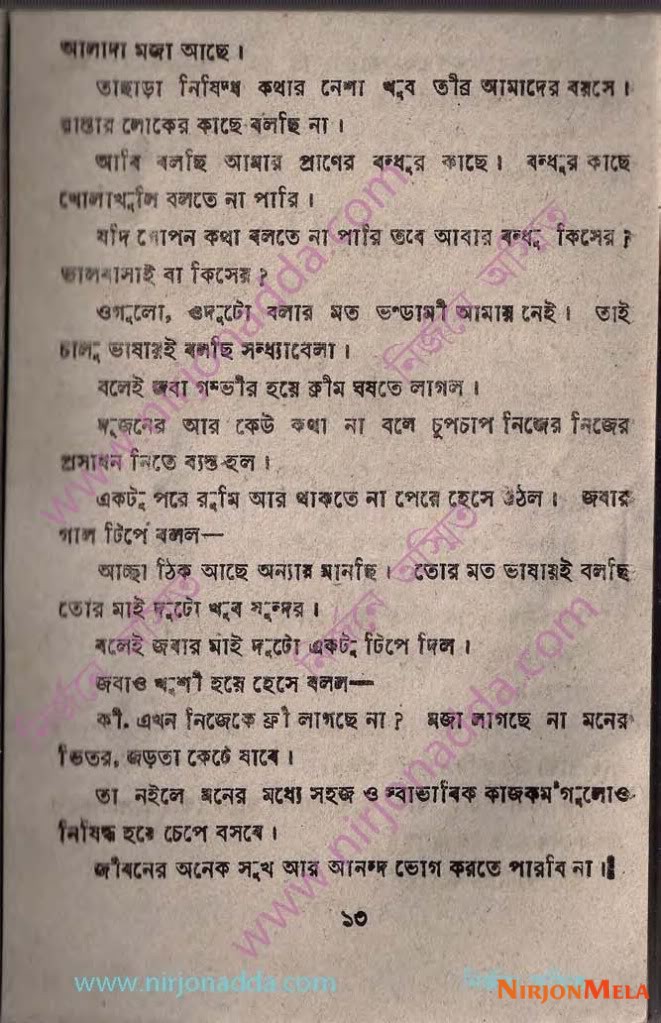 আলাদা মজা আছে।
তাছাড়া নিষিদ্ধ কথার নেশা খুব তীব্র আমাদের বয়সে।
রাস্তার লোকের কাছে বলছি না।
আমি বলছি আমার প্রাণের বন্ধুর কাছে। বন্ধুর কাছে
খোলাখুলি বলতে না পারি।
যদি গোপন কথা বলতে না পারি তবে আবার বন্ধু কিসের?
ভালবাসাই বা কিসের?
ওগুলো, ওদুটো বলার মত ভণ্ডামী আমায় নেই। তাই
চালু ভাষায়ই বলছি সন্ধ্যাবেলা।
বলেই জবা গম্ভীর হয়ে ক্রীম ঘষতে লাগল।
দুজনের আর কেউ কথা না বলে চুপচাপ নিজের নিজের
প্রসাধন নিতে ব্যস্ত হল।
একটু পরে রুমি আর থাকতে না পেরে হেসে উঠল। জবার
গাল টিপে বলল—
আচ্ছা ঠিক আছে অন্যায় মানছি। তোর মত ভাষায়ই বলছি
তোর মাই দুটো খুব সুন্দর।
বলেই জবার মাই দুটো একটু টিপে দিল।
জবাও খুশী হয়ে হেসে বলল—
কী. এখন নিজেকে ফ্রী লাগছে না? মজা লাগছে না মনের
ভিতর, জড়তা কেটে যাবে।
তা নইলে মনের মধ্যে সহজ ও স্বাভাবিক কাজকর্মগুলোও
নিষিদ্ধ হয়ে চেপে বসবে।
জীবনের অনেক সুখ আর আনন্দ ভোগ করতে পারবি না।
১৩
www.nirjonadda.com
নির্জনে অস্মিত
www.nirjonadda.com
নির্জনে অস্মিত
নির্জনে অস্মিত
www.nirjonadda.com
NIRJONMELA